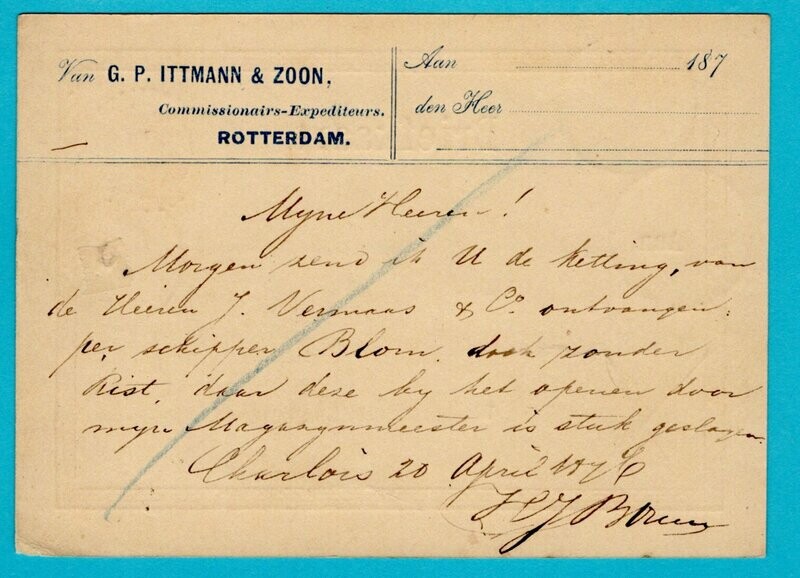 Van G. P. ITTMANN & ZOON,
Commissionairs-Expediteurs.
ROTTERDAM.
Aan 187
den Heer
Myne Heeren!
Morgen zend ik U de ketting, van
de Heeren J. Vermaas & Co. ontvangen,
per schipper Blom, doch zonder
Kist, daar deze by het openen door
myn Magazynmeester is stuk geslagen.
Charlois 20 April 1876